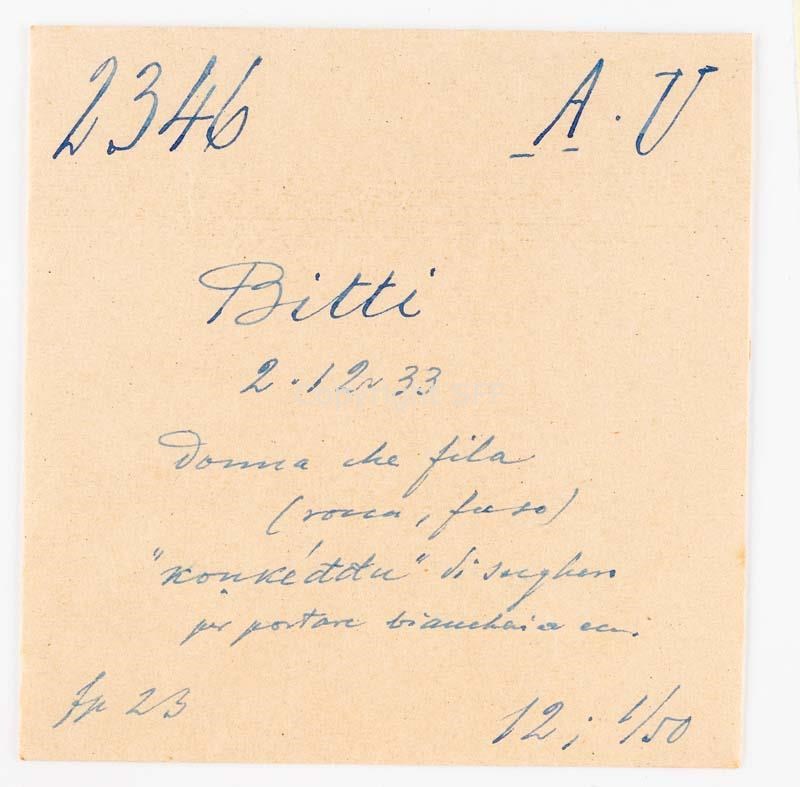 2346 A. V
Bitti
2.12.33
Donna che fila
(rocca, fuso)
"konkéđđu" di sughero
per portare biancheria ecc.
fp 23
12; 1/50